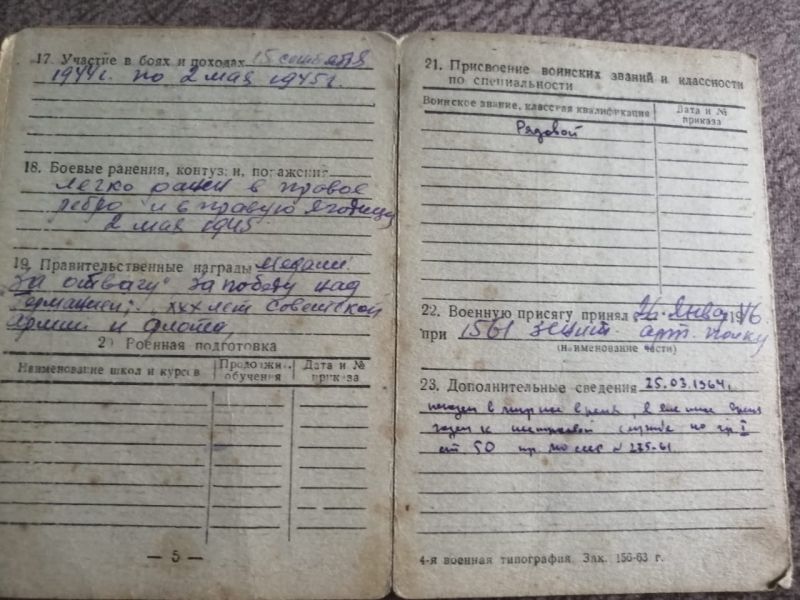 17. Участие в боях и походах 15 сентября
1944г. по 2 мая 1945г.
18. Боевые ранения, контузии, поражения
легко ранен в правое
ребро и в правую ягодицу
2 мая 1945
19. Правительственные награды медали:
За отвагу За победу над
Германией; ХХХ лет Советской
Армии и флота
20 Военная подготовка
Наименование школ и курсов
Продолжи. обучения
Дата и № приказа
— 5 —
21. Присвоение воинских званий и классности
по специальности
Воинское звание, классная квалификация
Дата и № приказа
Рядовой
22. Военную присягу принял 26 Янва 1946.
при 1561 зенит. арт. полку
(наименование части)
23. Дополнительные сведения 25.03.1964г.
в мирное время, в время
годен к службе по гр I
от 50 пр. № 275-61
4-я военная типография. Зак. 156-63 г.